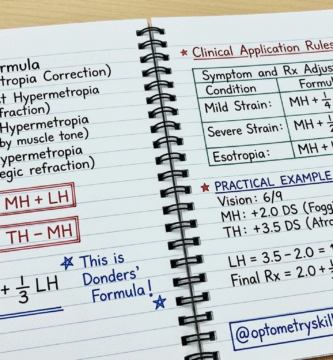 rmula
tropia Correction)
t Hypermetropia
fraction)
Hypermetropia
by muscle tone)
ypermetropia
egic refraction)
MH + LH
TH - MH
+ 1/3 LH
This is
Donders'
Formula!
Clinical Application Rules
Symptom and Rx Adjus
Condition Formul
Mild Strain: MH + 1
Severe Strain: MH + 1
Esotropia: MH +
PRACTICAL EXAMPLE
Vision: 6/9
MH: +2.0 DS (Fogg
TH: +3.5 DS (Atro
LH = 3.5 - 2.0 =
Final Rx = 2.0 +
@optometryskill